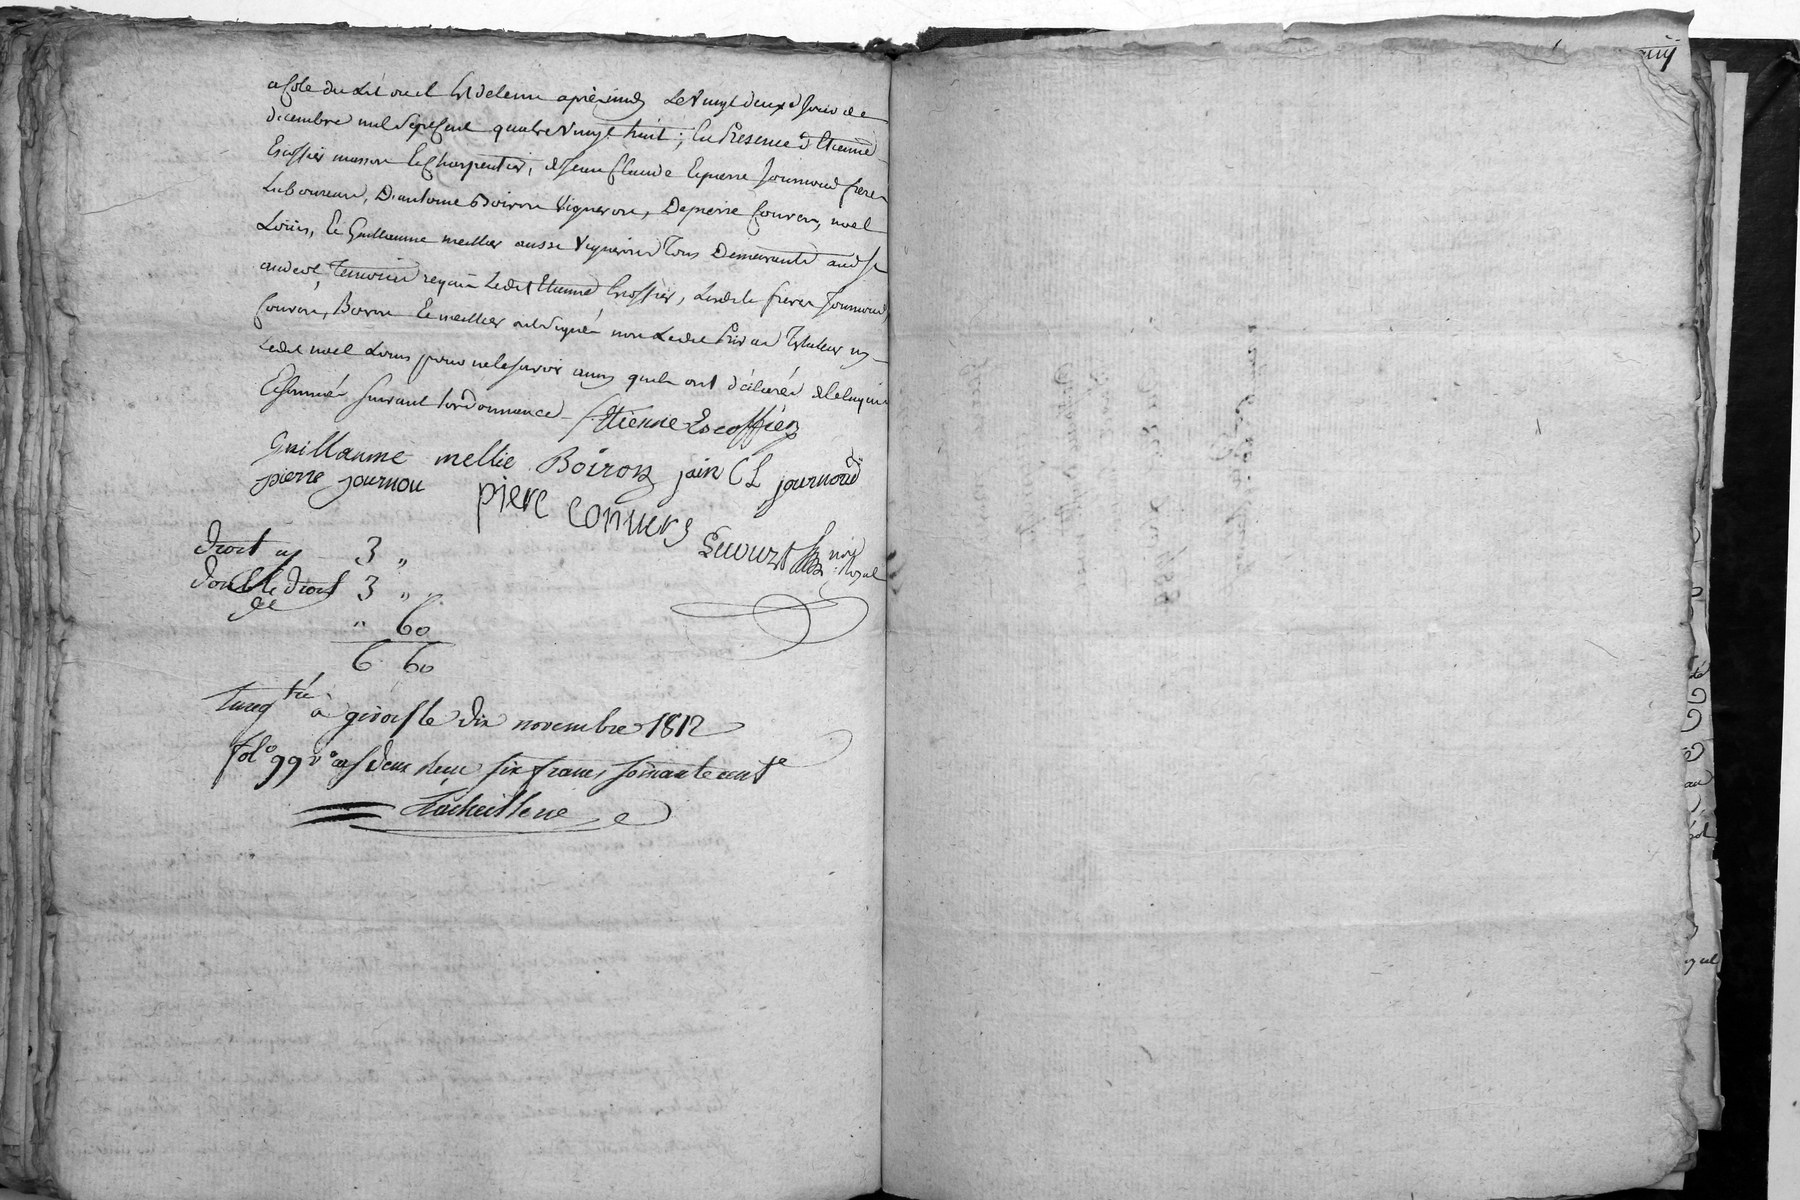 a Cote du Lit ou il Est detenu après midy Le vingt deuxe Jour de
decembre mil Sept Cent quatre vingt huit ; En Presence d'Etienne
Escoffier masson Et Charpentier, de Jean Claude Et pierre Journoud freres
Laboureurs, D'antoine Boiron Vigneron, De pierre Couvers, noel
Louis, Et Guillaume mellier aussi Vignerons Tous Demeurants aud St
andeol, Temoins requis Ledit Etienne Escoffier, Lesdits freres Journoud,
Couvers, Boiron Et mellier ont Signé non Ledit testateur ny
Ledit noel Louis pour ne le savoir ainsy qu'ils ont déclaré de ce enquis
Et sommés Suivant l'ordonnance Etienne Escoffier
Guillaume mellie Boiron jain CL journoud
pierre journou
piere Conuers
not Royal
Droit 3 "
Double Droit 3 " "
de " 60
6 60
Enreg tré à givors le dix novembre 1812
fol° 99 v° deux reçu six francs soixante cent e